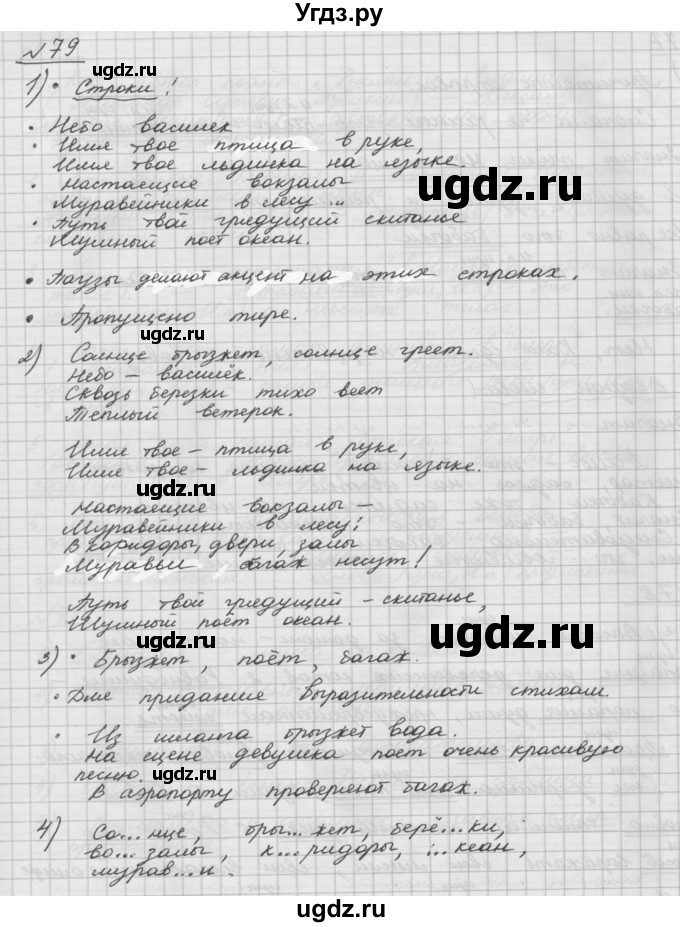 Угдз.ру
№79
1) • Строки!
• Небо василек
• Имя твое птица в руке,
Имя твое льдинка на языке.
• Настаещие вокзалы
Муравейники в лесу ...
• Путь твой грядущий скитанье
Шумный поет океан.
• Паузы делают акцент на этих строках.
• Пропущено тире.
2) Солнце брызжет, солнце греет.
Небо – василёк.
Сквозь березки тихо веет
Теплый ветерок.
Имя твое – птица в руке,
Имя твое – льдинка на языке.
Настаещие вокзалы –
Муравейники в лесу:
В коридоры, двери, залы
Муравьи багаж несут!
Путь твой грядущий – скитанье,
Шумный поёт океан.
3) • Брызжет, поёт, багаж.
• Для придание выразительности стихам.
• Из шланга брызжет вода.
На сцене девушка поет очень красивую
песню.
В аэропорту проверяют багаж.
4) Со...нце, бры...жет, берё...ки,
во...залы, к...ридоры, ...кеан,
мурав...и.
ugdz.ru
ugdz.ru
ugdz.ru
ugdz.ru
ugdz.ru
ugdz.ru
ugdz.ru
ugdz.ru
ugdz.ru
ugdz.ru
ugdz.ru
ugdz.ru
ugdz.ru